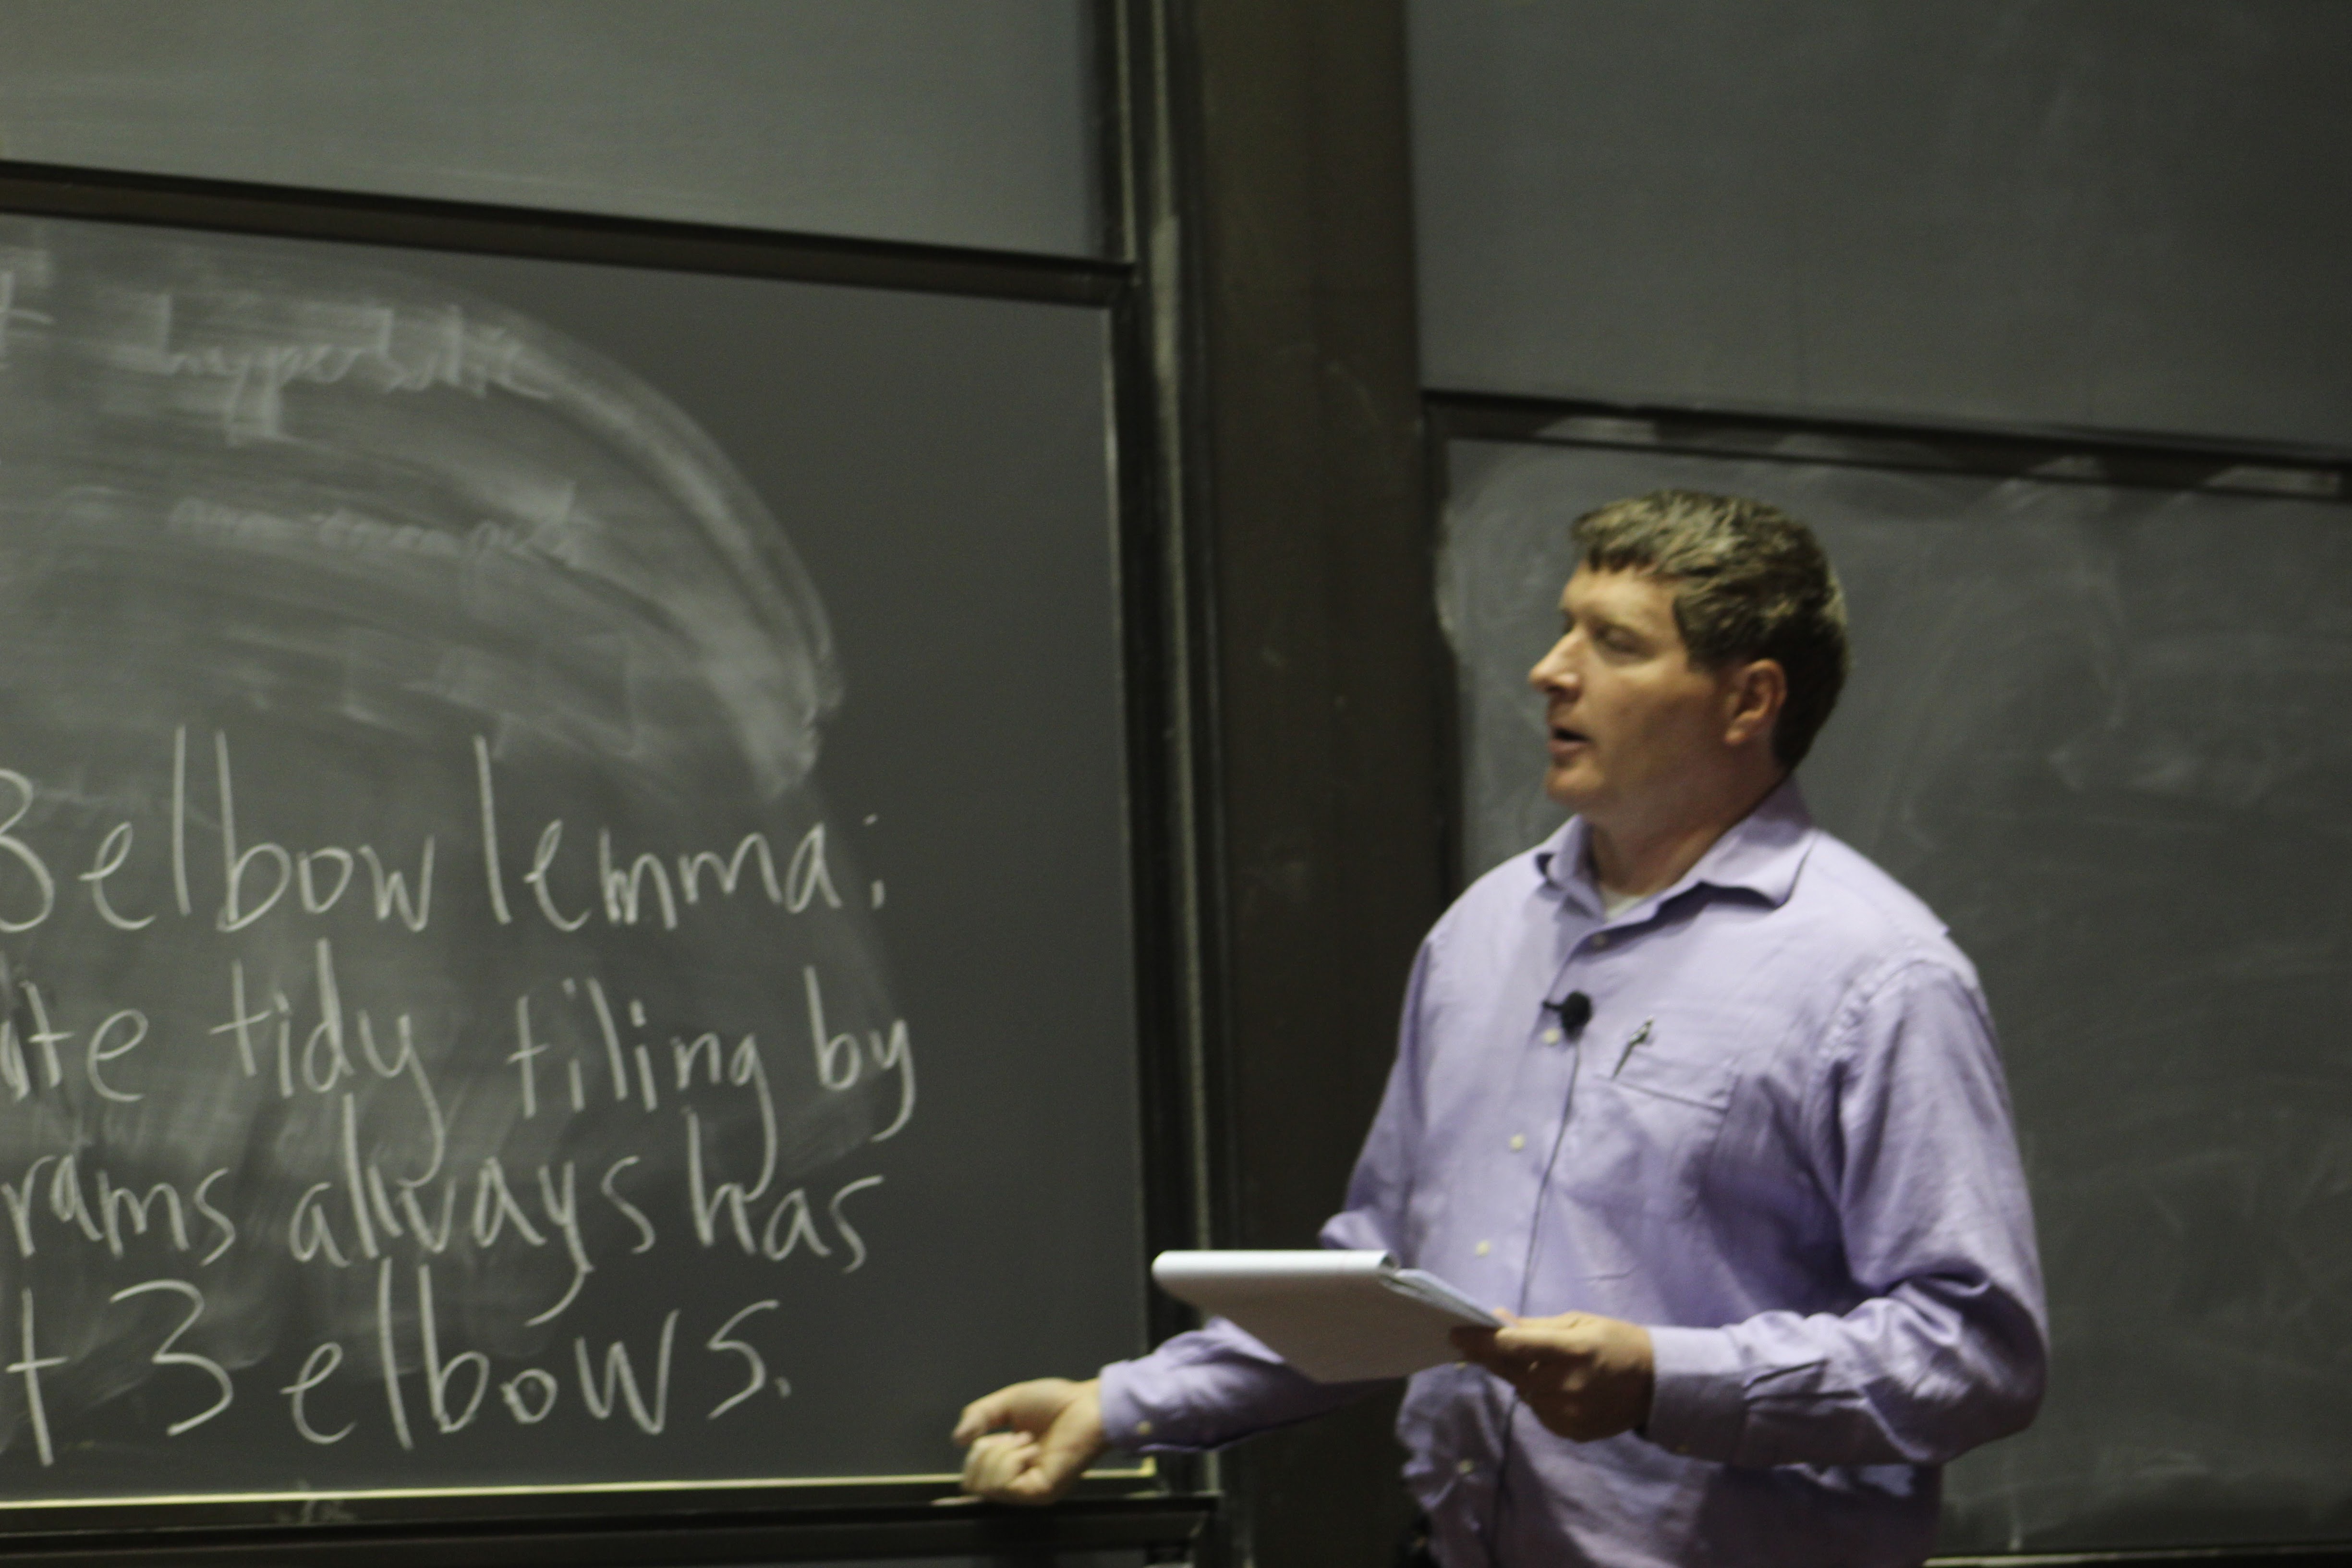 hyperbolic
3 elbow lemma:
tidy tiling by
always has
3 elbows.